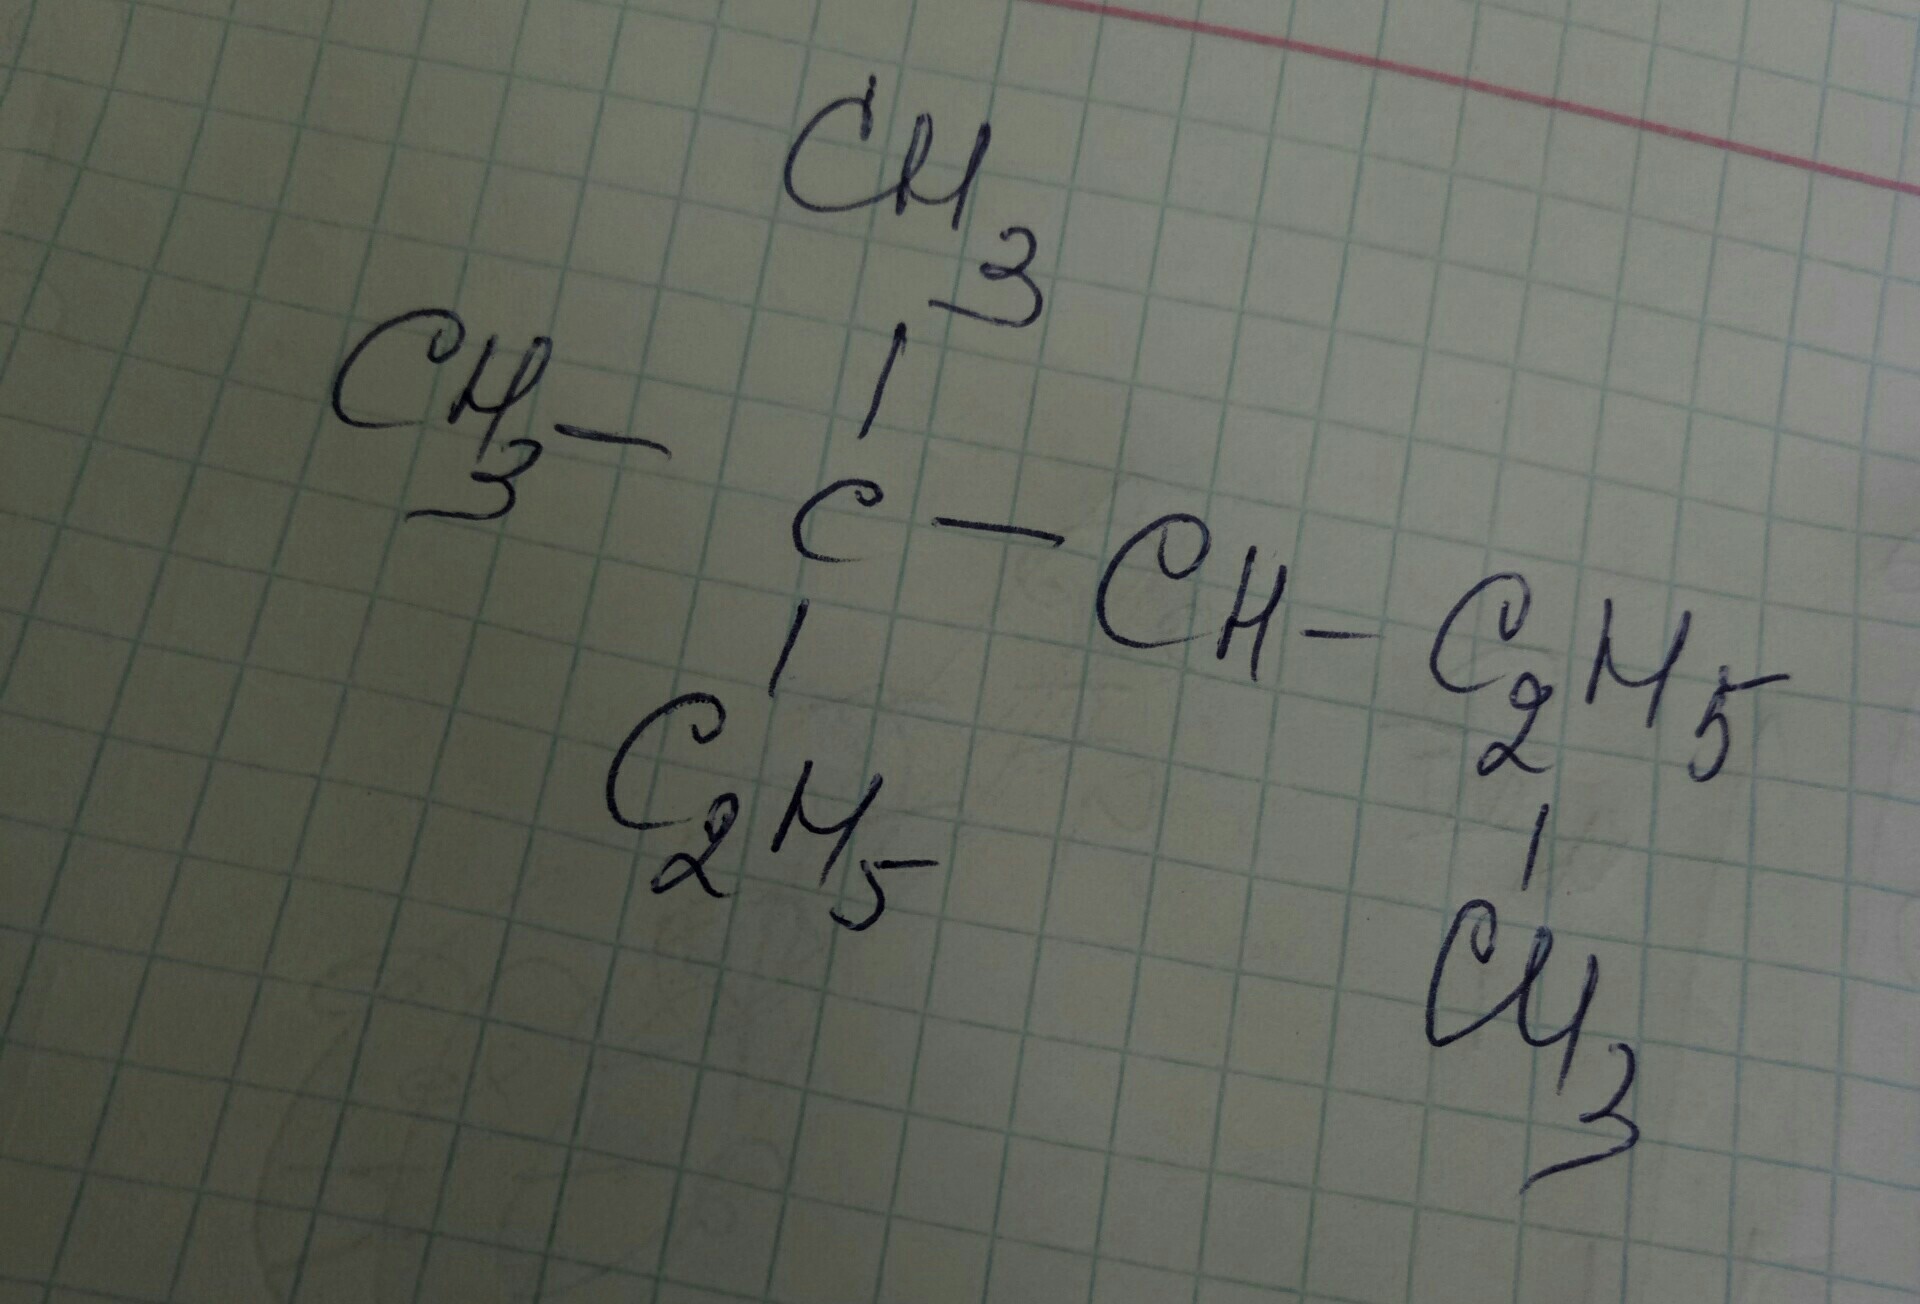 CH3
CH3 – C – CH – C2H5
C2H5 CH3